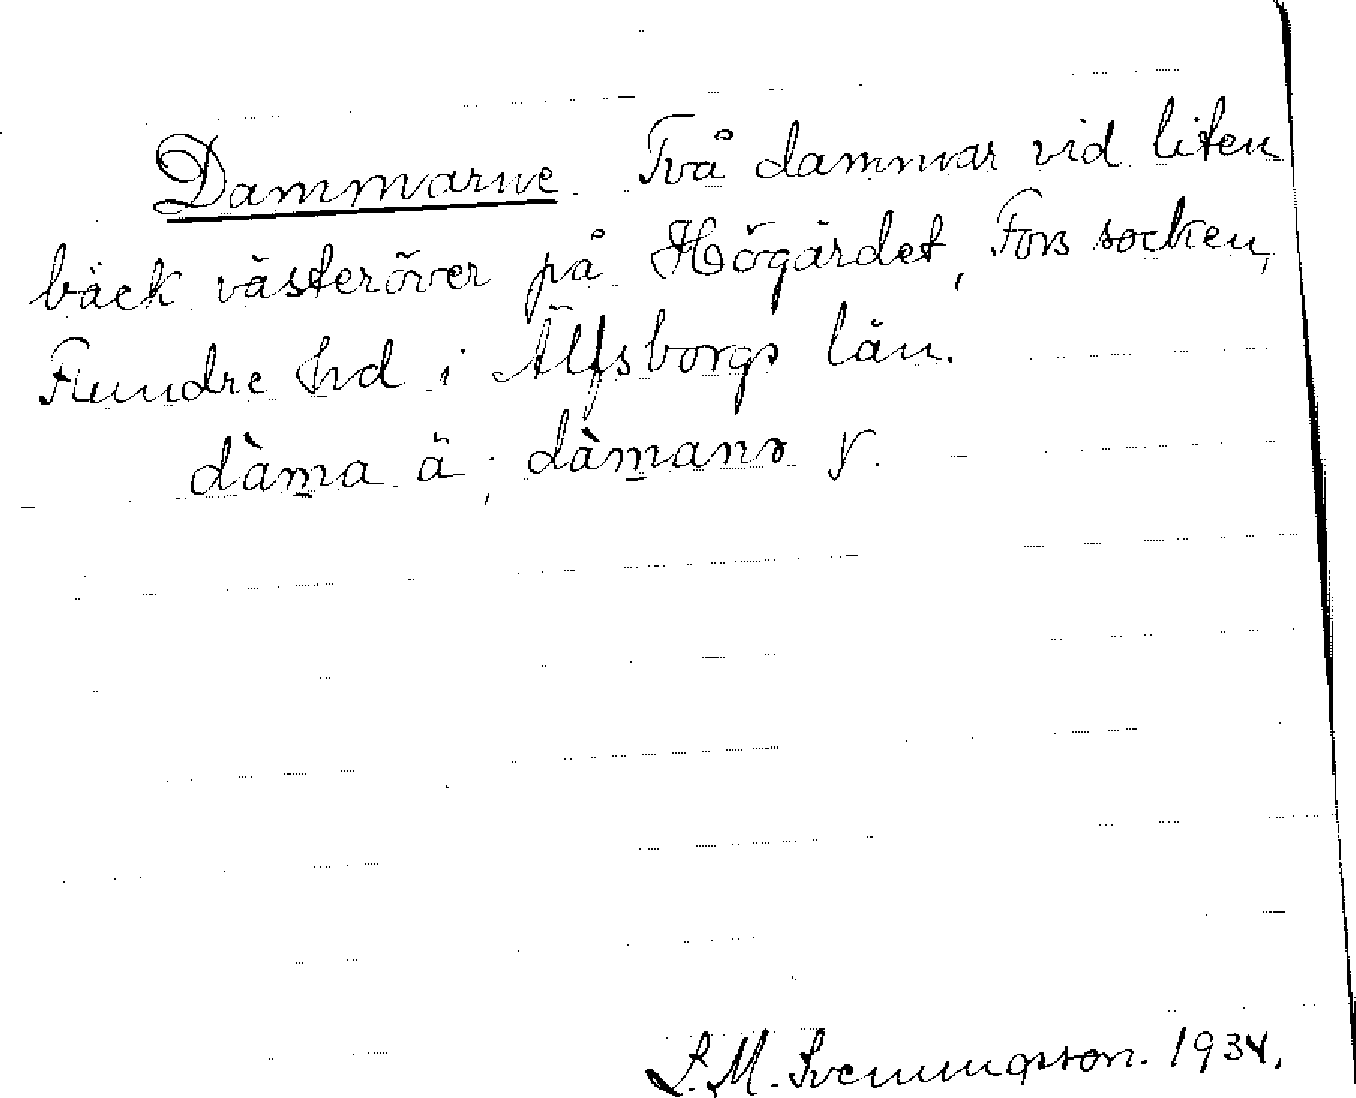 Dammarne. Två dammar vid liten
bäck västeröver på Högärdet, Fors socken,
Flundre hd i Älfsborgs län.
dàma ä; dàmanɘ r.
L. M. Svenungsson. 1934.